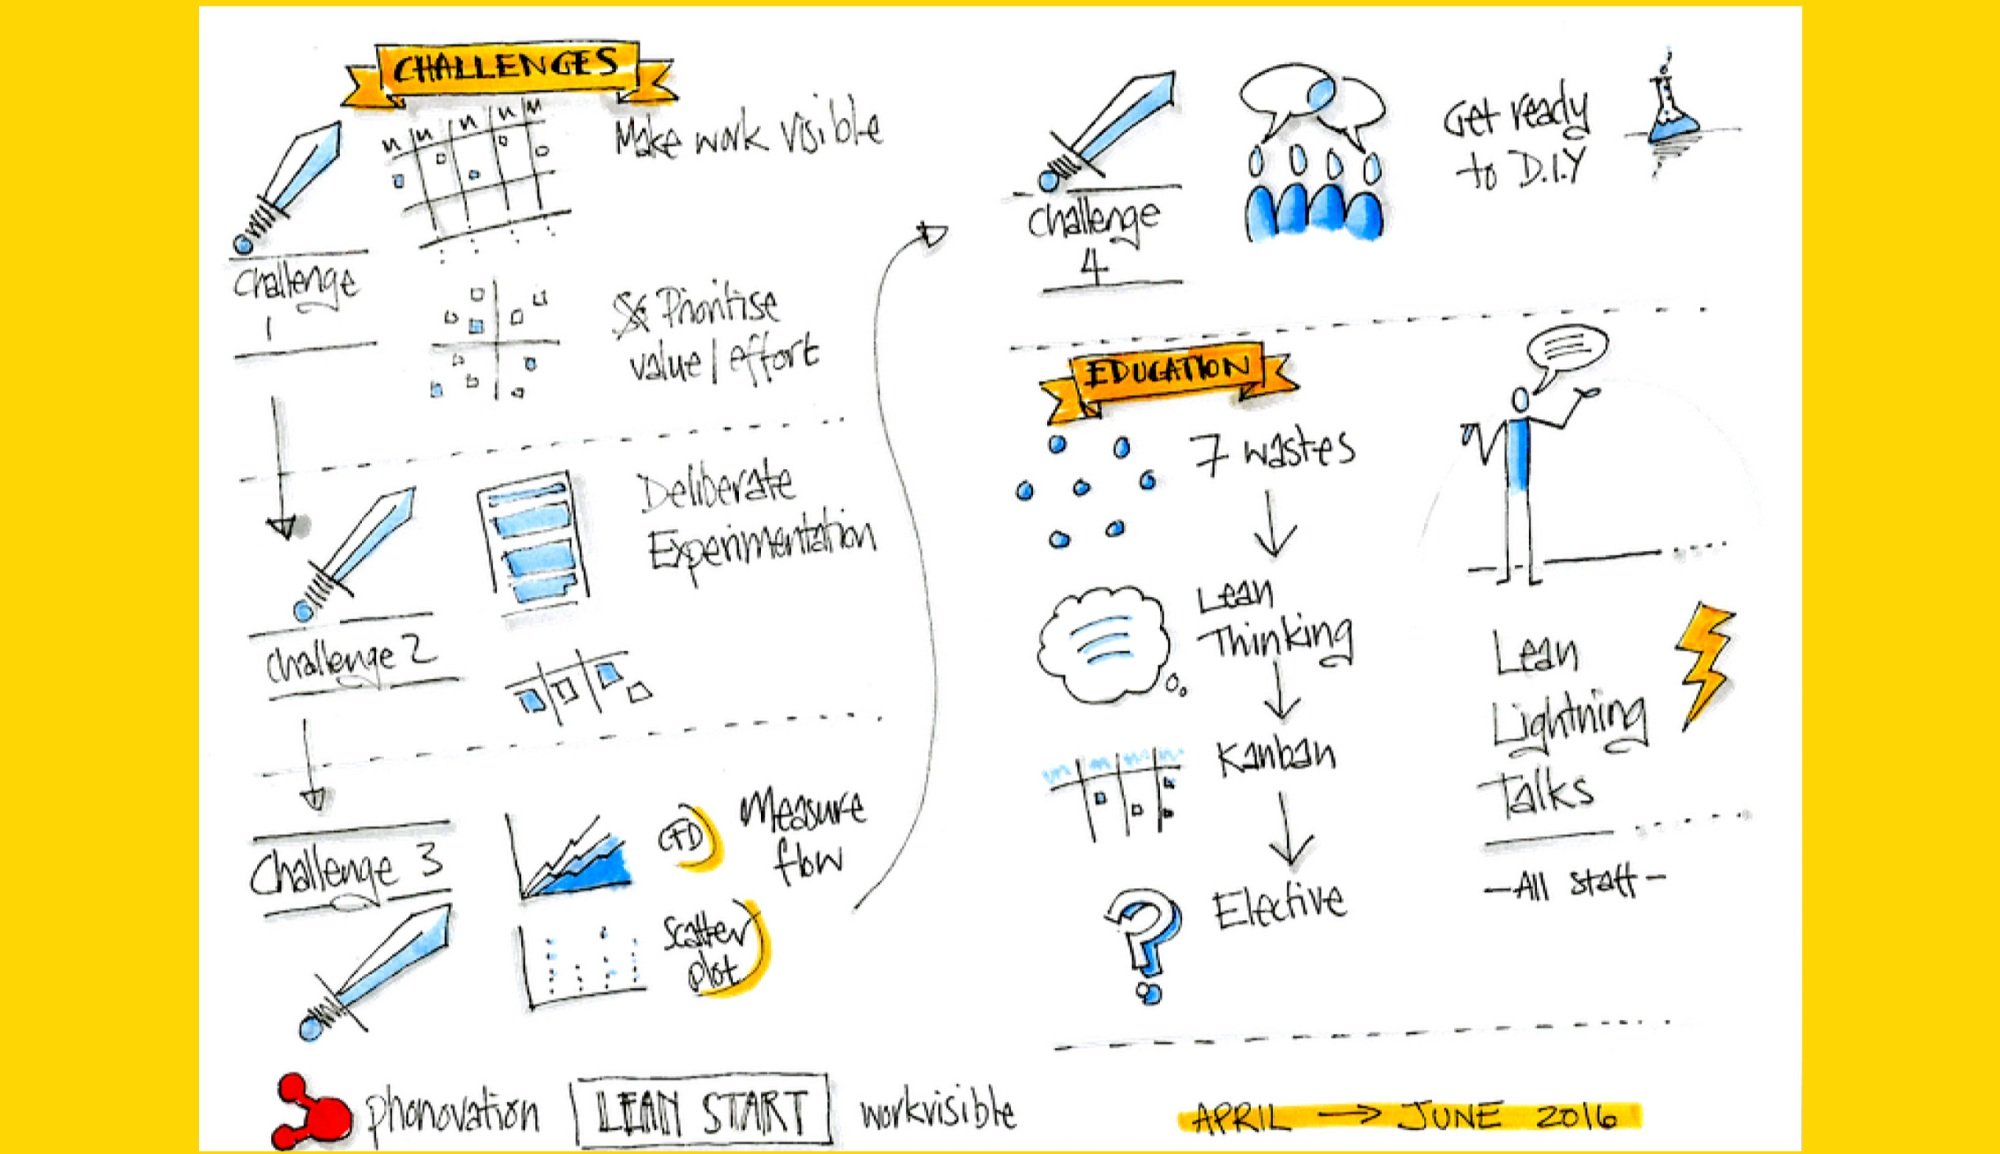 CHALLENGES
Make work visible
Challenge
1
& Prioritise
value/effort
Deliberate
Experimentation
Challenge 2
Challenge 3
CFD
Measure
flow
Scatter
plot
Challenge
4
Get ready
to D.I.Y
EDUCATION
7 wastes
Lean
Thinking
Kanban
Elective
Lean
Lightning
Talks
- All staff -
phonovation
LEAN START
workvisible
APRIL → JUNE 2016